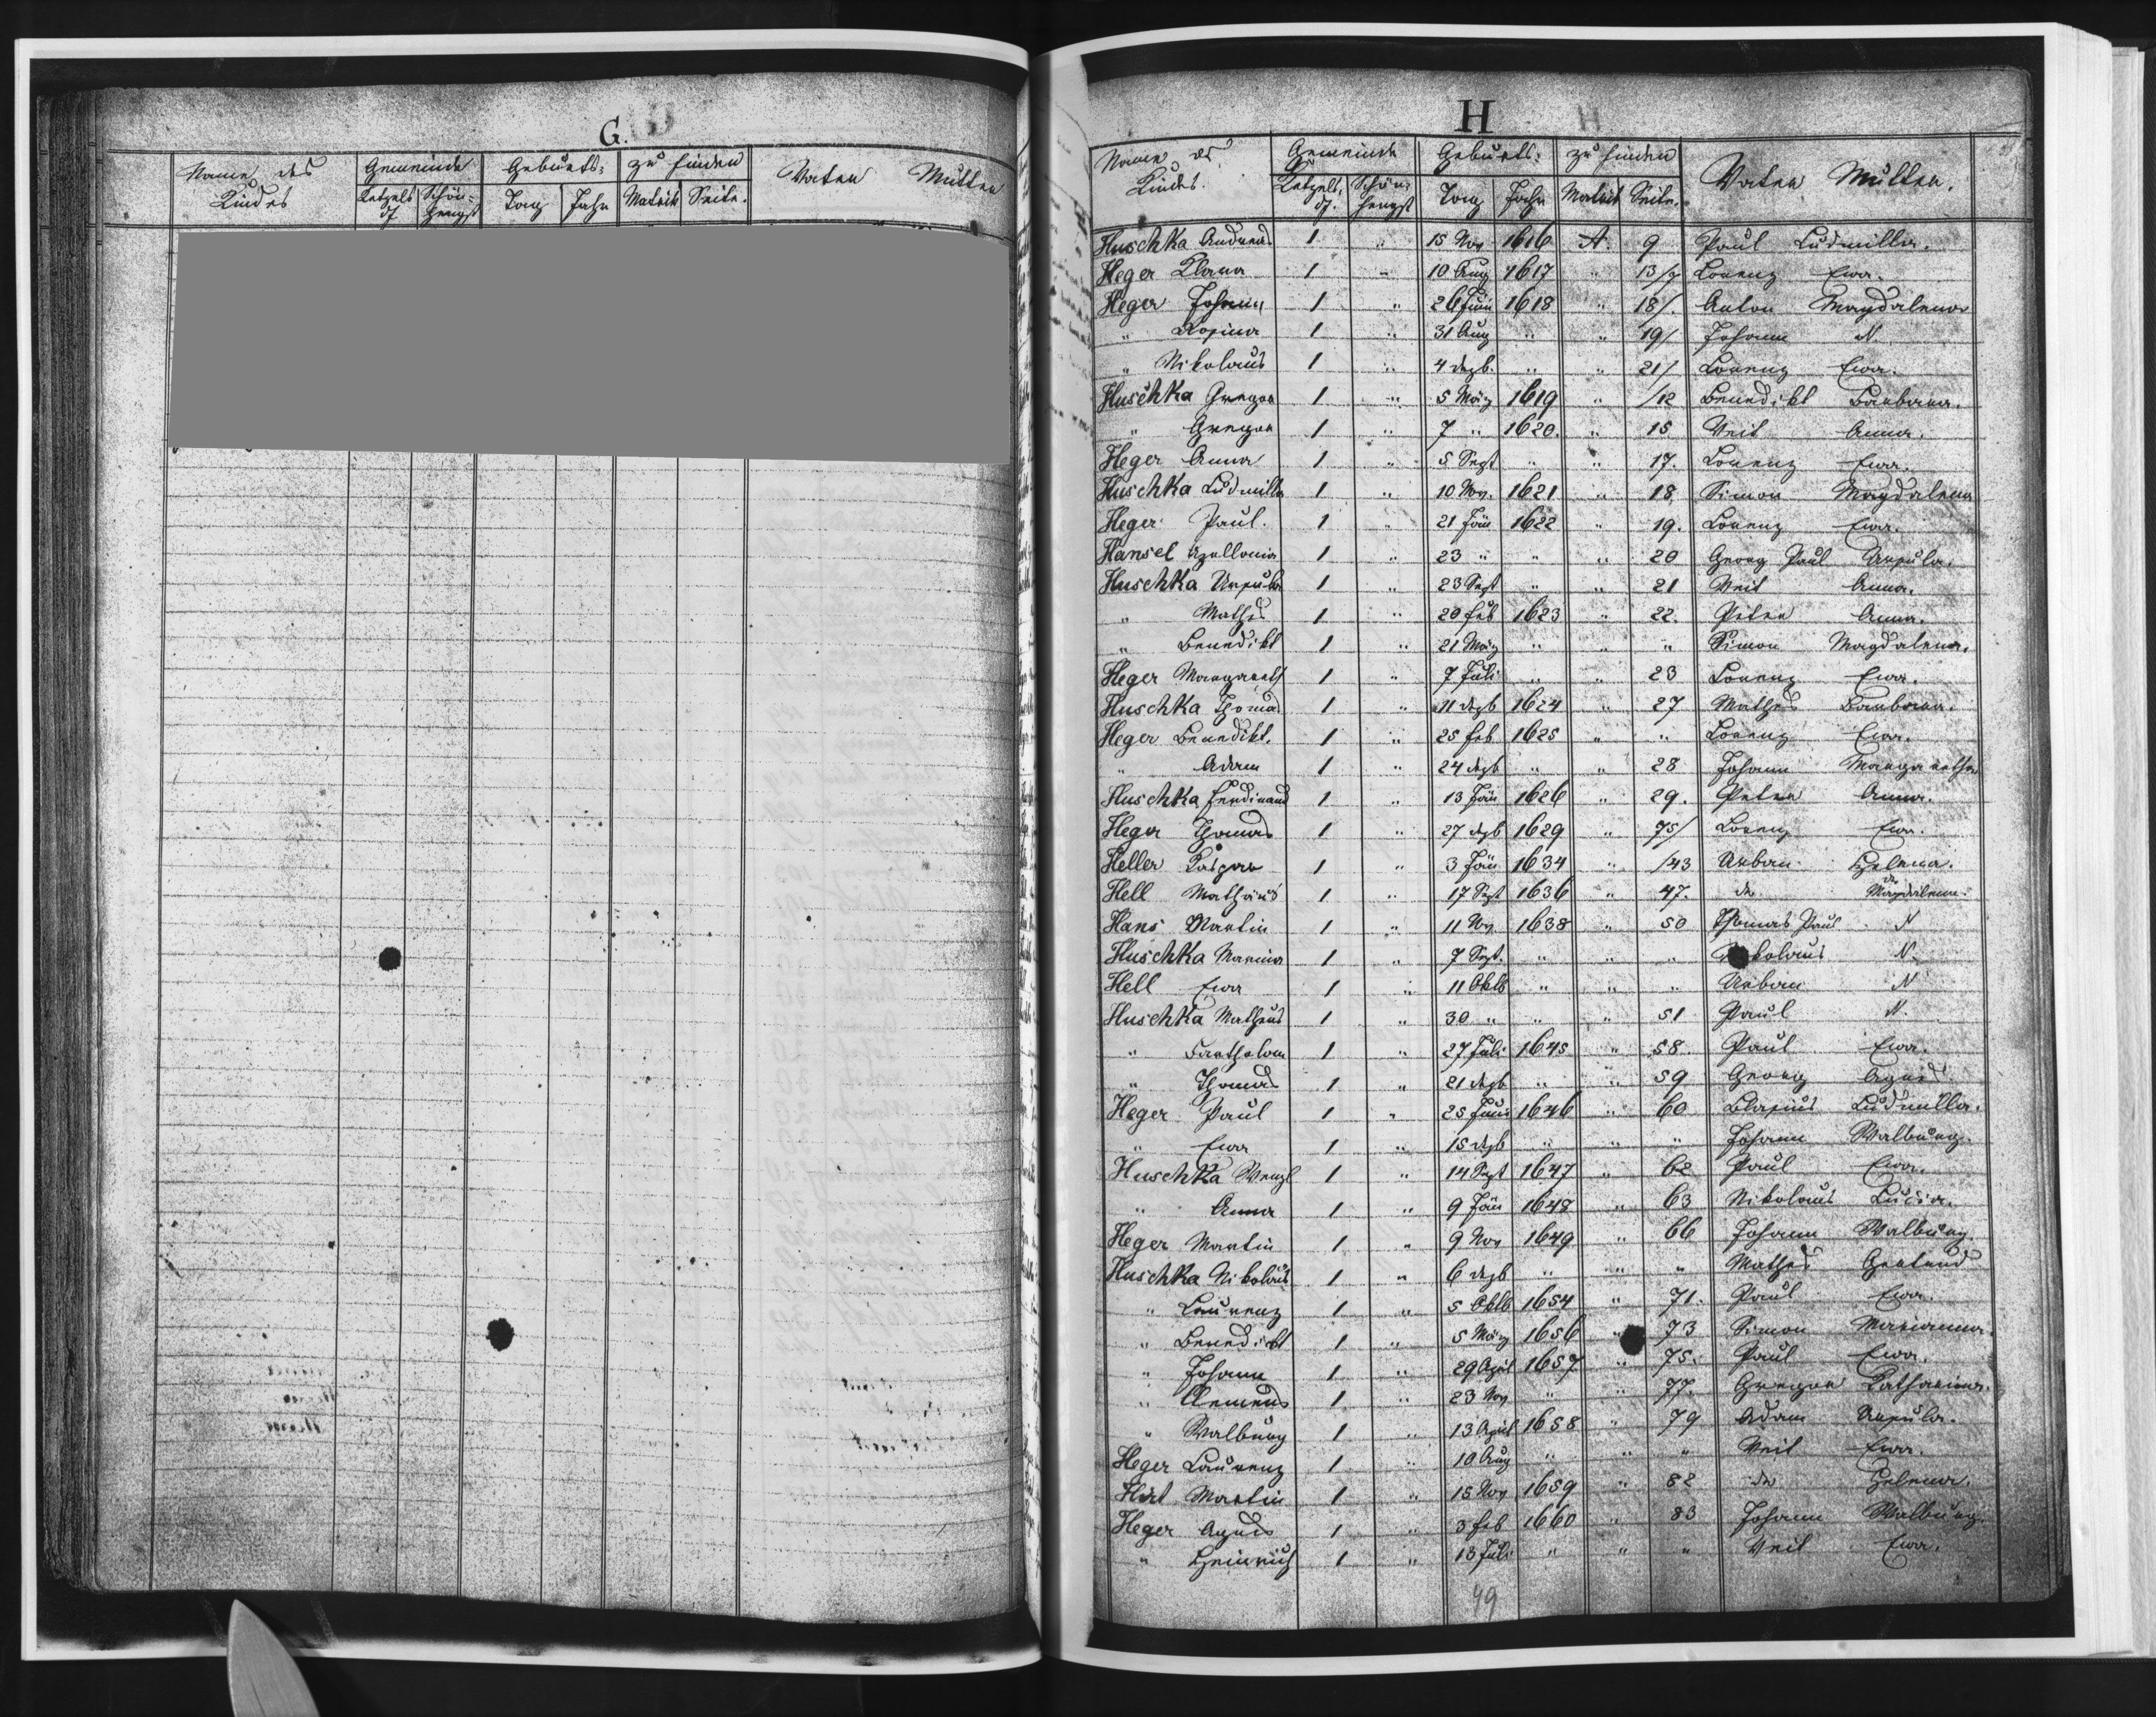 G.
Name des Kindes Gemeinde Geburts: zu finden Vater Mutter
Ketzelsdf Schönhengst Tag Jahr Matrik Seite.
H
Name des Kindes. Gemeinde Geburts: zu finden Vater Mutter.
Ketzelsdf. Schönhengst Tag Jahr Matrik Seite.
Huschka Andreas 1 " 15 Nov 1616 A. 9 Paul Ludmilla.
Heger Clara 1 " 10 Aug 1617 " 13/ Lorenz Eva.
Heger Johann 1 " 26 Juni 1618 " 18/. Anton Magdalena
" Rosina 1 " 31 Aug " " 19/ Johann N.
" Nikolaus 1 " 4 dezb. " " 21/ Lorenz Eva.
Huschka Gregor 1 " 5 März 1619 " /12 Benedikt Barbara.
" Gregor 1 " 7 " 1620. " 15 Veit Anna.
Heger Anna 1 " 5 Sept " " 17. Lorenz Eva.
Huschka Ludmilla 1 " 10 Nov. 1621 " 18 Simon Magdalena
Heger Paul. 1 " 21 Jän 1622 " 19. Lorenz Eva.
Hansel Apollonia 1 " 23 " " " 20 Georg Paul Ursula.
Huschka Ursula 1 " 23 Sept " " 21 Veit Anna.
" Mathes 1 " 20 feb 1623 " 22. Peter Anna.
" Benedikt 1 " 21 März " " " Simon Magdalena.
Heger Margareth 1 " 7 Juli " " 23 Lorenz Eva.
Huschka Thomas 1 " 11 dezb 1624 " 27 Mathes Barbara.
Heger Benedikt. 1 " 25 feb 1625 " " Lorenz Eva.
" Adam 1 " 24 dezb " " 28 Johann Margaretha
Huschka Ferdinand 1 " 13 Jän 1626 " 29. Peter Anna.
Heger Thomas 1 " 27 dezb 1629 " 75/ Lorenz Eva.
Heller Kaspar 1 " 3 Jän 1634 " /43 Urban Helena.
Hell Mathäus 1 " 17 Sept 1636 " 47. do do Magdalena.
Hans Martin 1 " 11 Nov. 1638 " 50 Thomas Paul N
Huschka Marina 1 " 7 Sept. " " " Nikolaus N.
Hell Eva 1 " 11 Oktb " " " Urban N
Huschka Mathäus 1 " 30 " " " 51 Paul N.
" Bartholom 1 " 27 Juli 1645 " 58. Paul Eva.
" Thomas 1 " 21 dezb " " 59 Georg Agnes.
Heger Paul 1 " 25 Juni 1646 " 60 Blasius Ludmilla.
" Eva 1 " 15 dezb " " " Johann Walburg.
Huschka Wenzl 1 " 14 Sept 1647 " 62 Paul Eva.
" Anna 1 " 9 Jän 1648 " 63 Nikolaus Lucia.
Heger Martin 1 " 9 Nov 1649 " 66 Johann Walburg.
Huschka Nikolaus 1 " 6 dezb " " " Mathes Gertrud
" Laurenz 1 " 5 Oktb 1654 " 71. Paul Eva.
" Benedikt 1 " 5 März 1656 " 73 Simon Marianna.
" Johann 1 " 29 April 1657 " 75. Paul Eva.
" Clemens 1 " 23 Nov " " 77. Gregor Katharina.
" Walburg 1 " 13 April 1658 " 79 Adam Ursula.
Heger Laurenz 1 " 10 Aug " " " Veit Eva.
Hirt Martin 1 " 15 Nov 1659 " 82 do Helena.
Heger Agnes 1 " 3 feb 1660 " 83 Johann Walburg.
" Heinrich 1 " 13 Juli " " " Veit Eva.
49